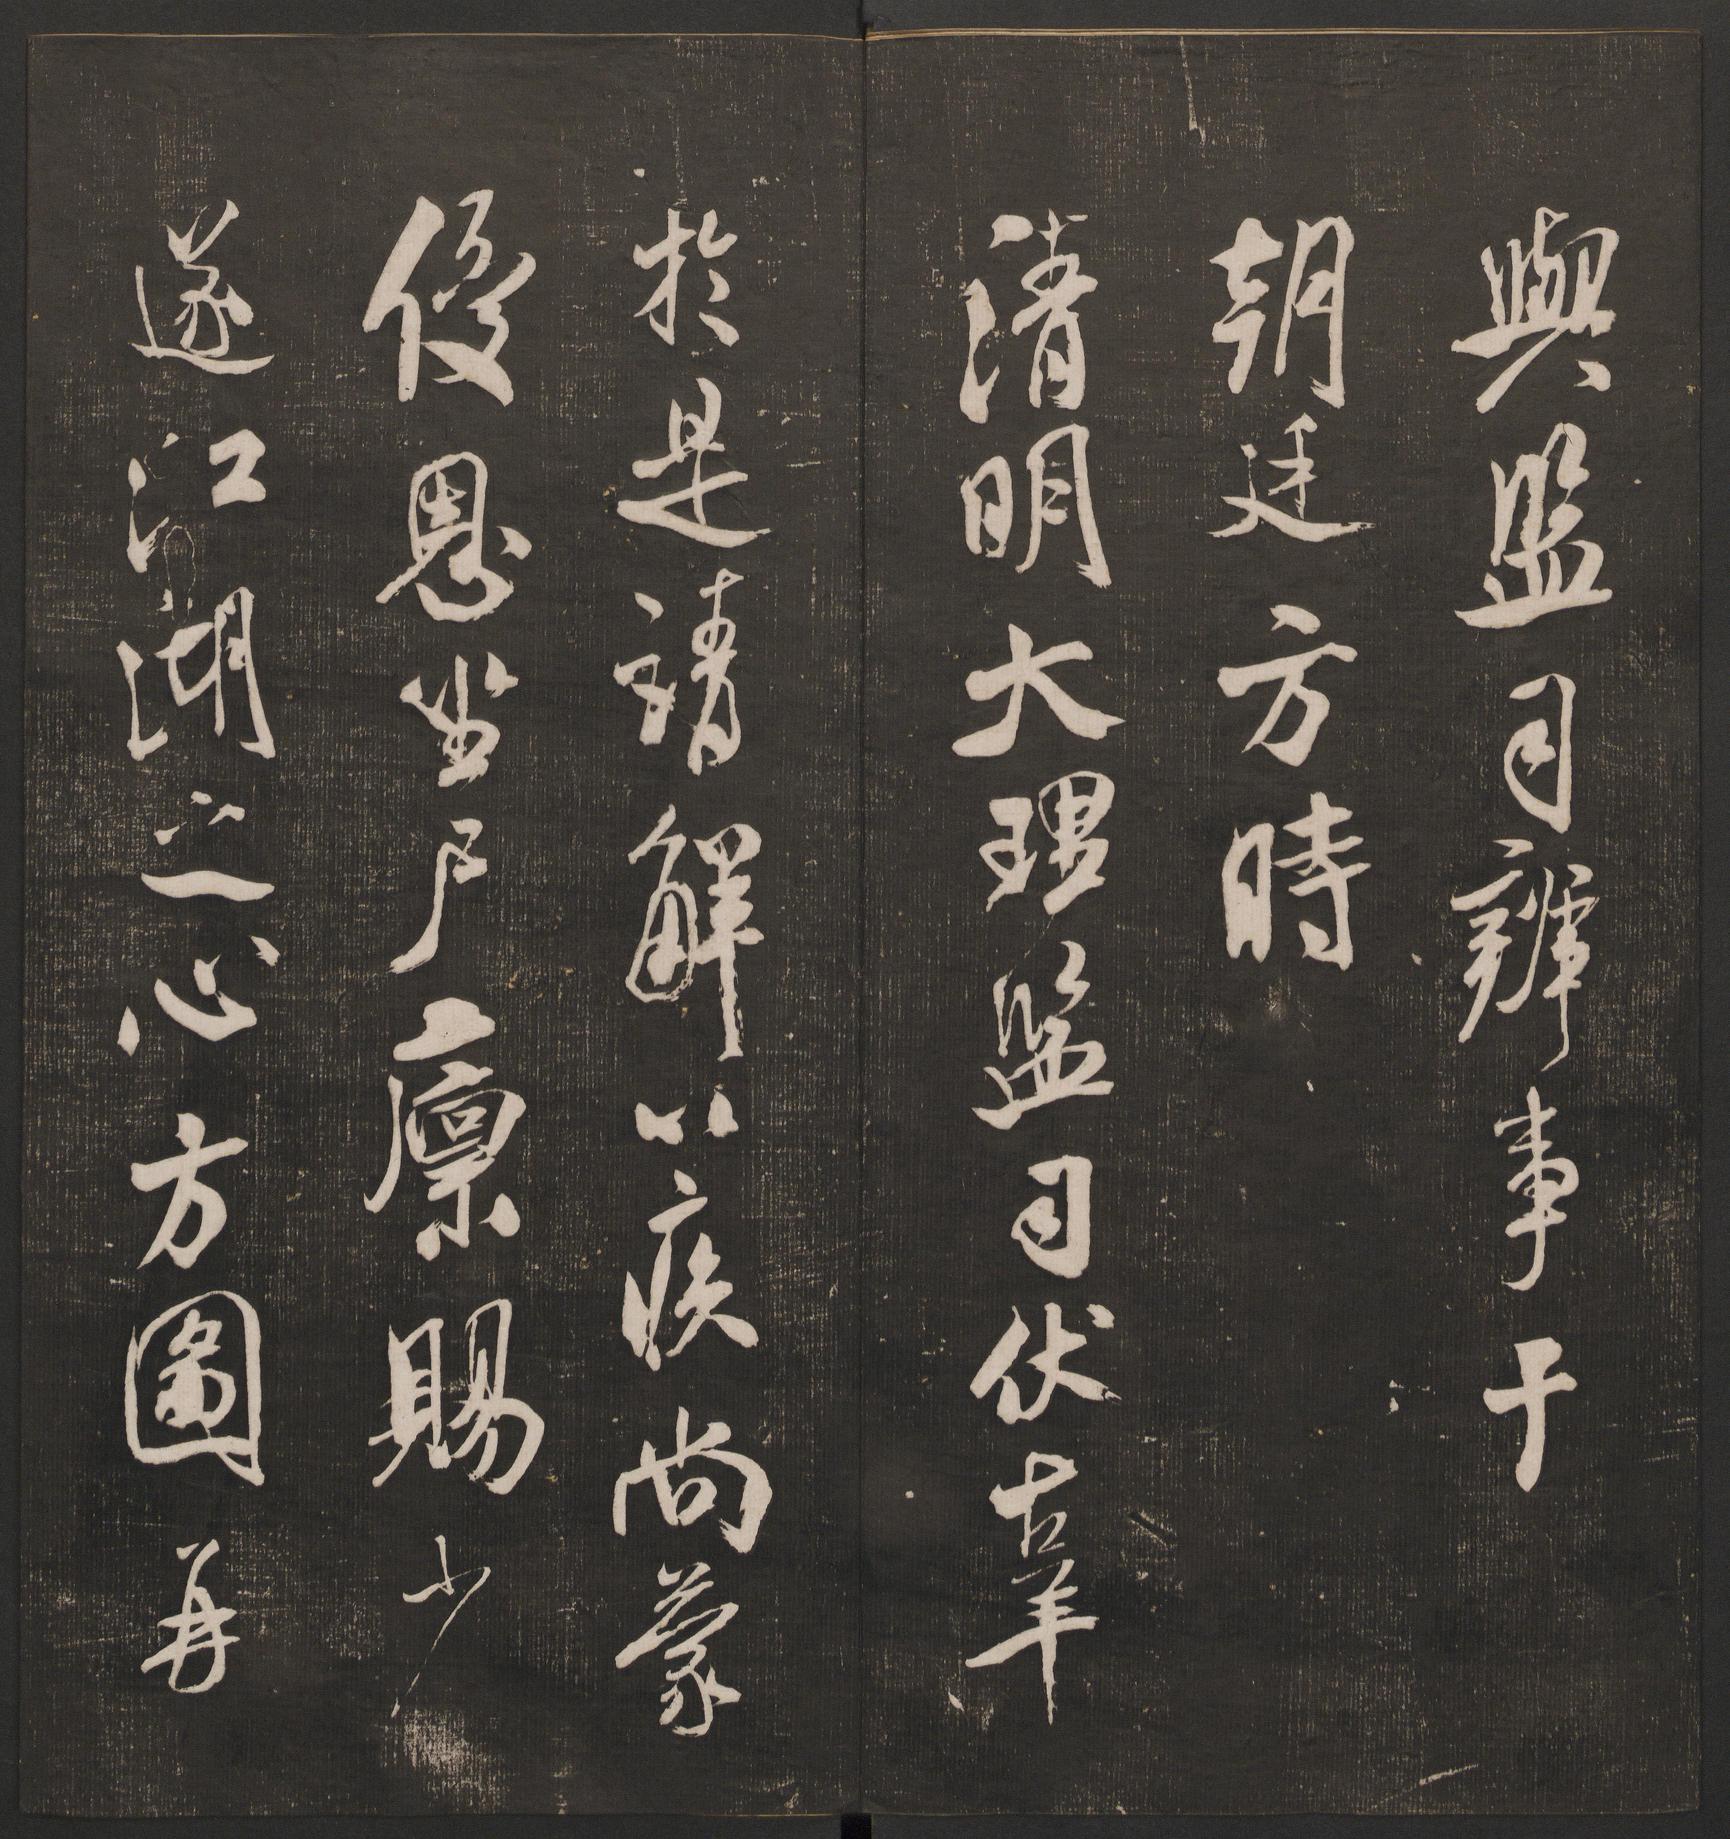 與監司辨事于
朝廷方時
清明大理監司伏辜
於是請解以疾尚蒙
優恩坐尸廩賜少
遂江湖之心方圖再